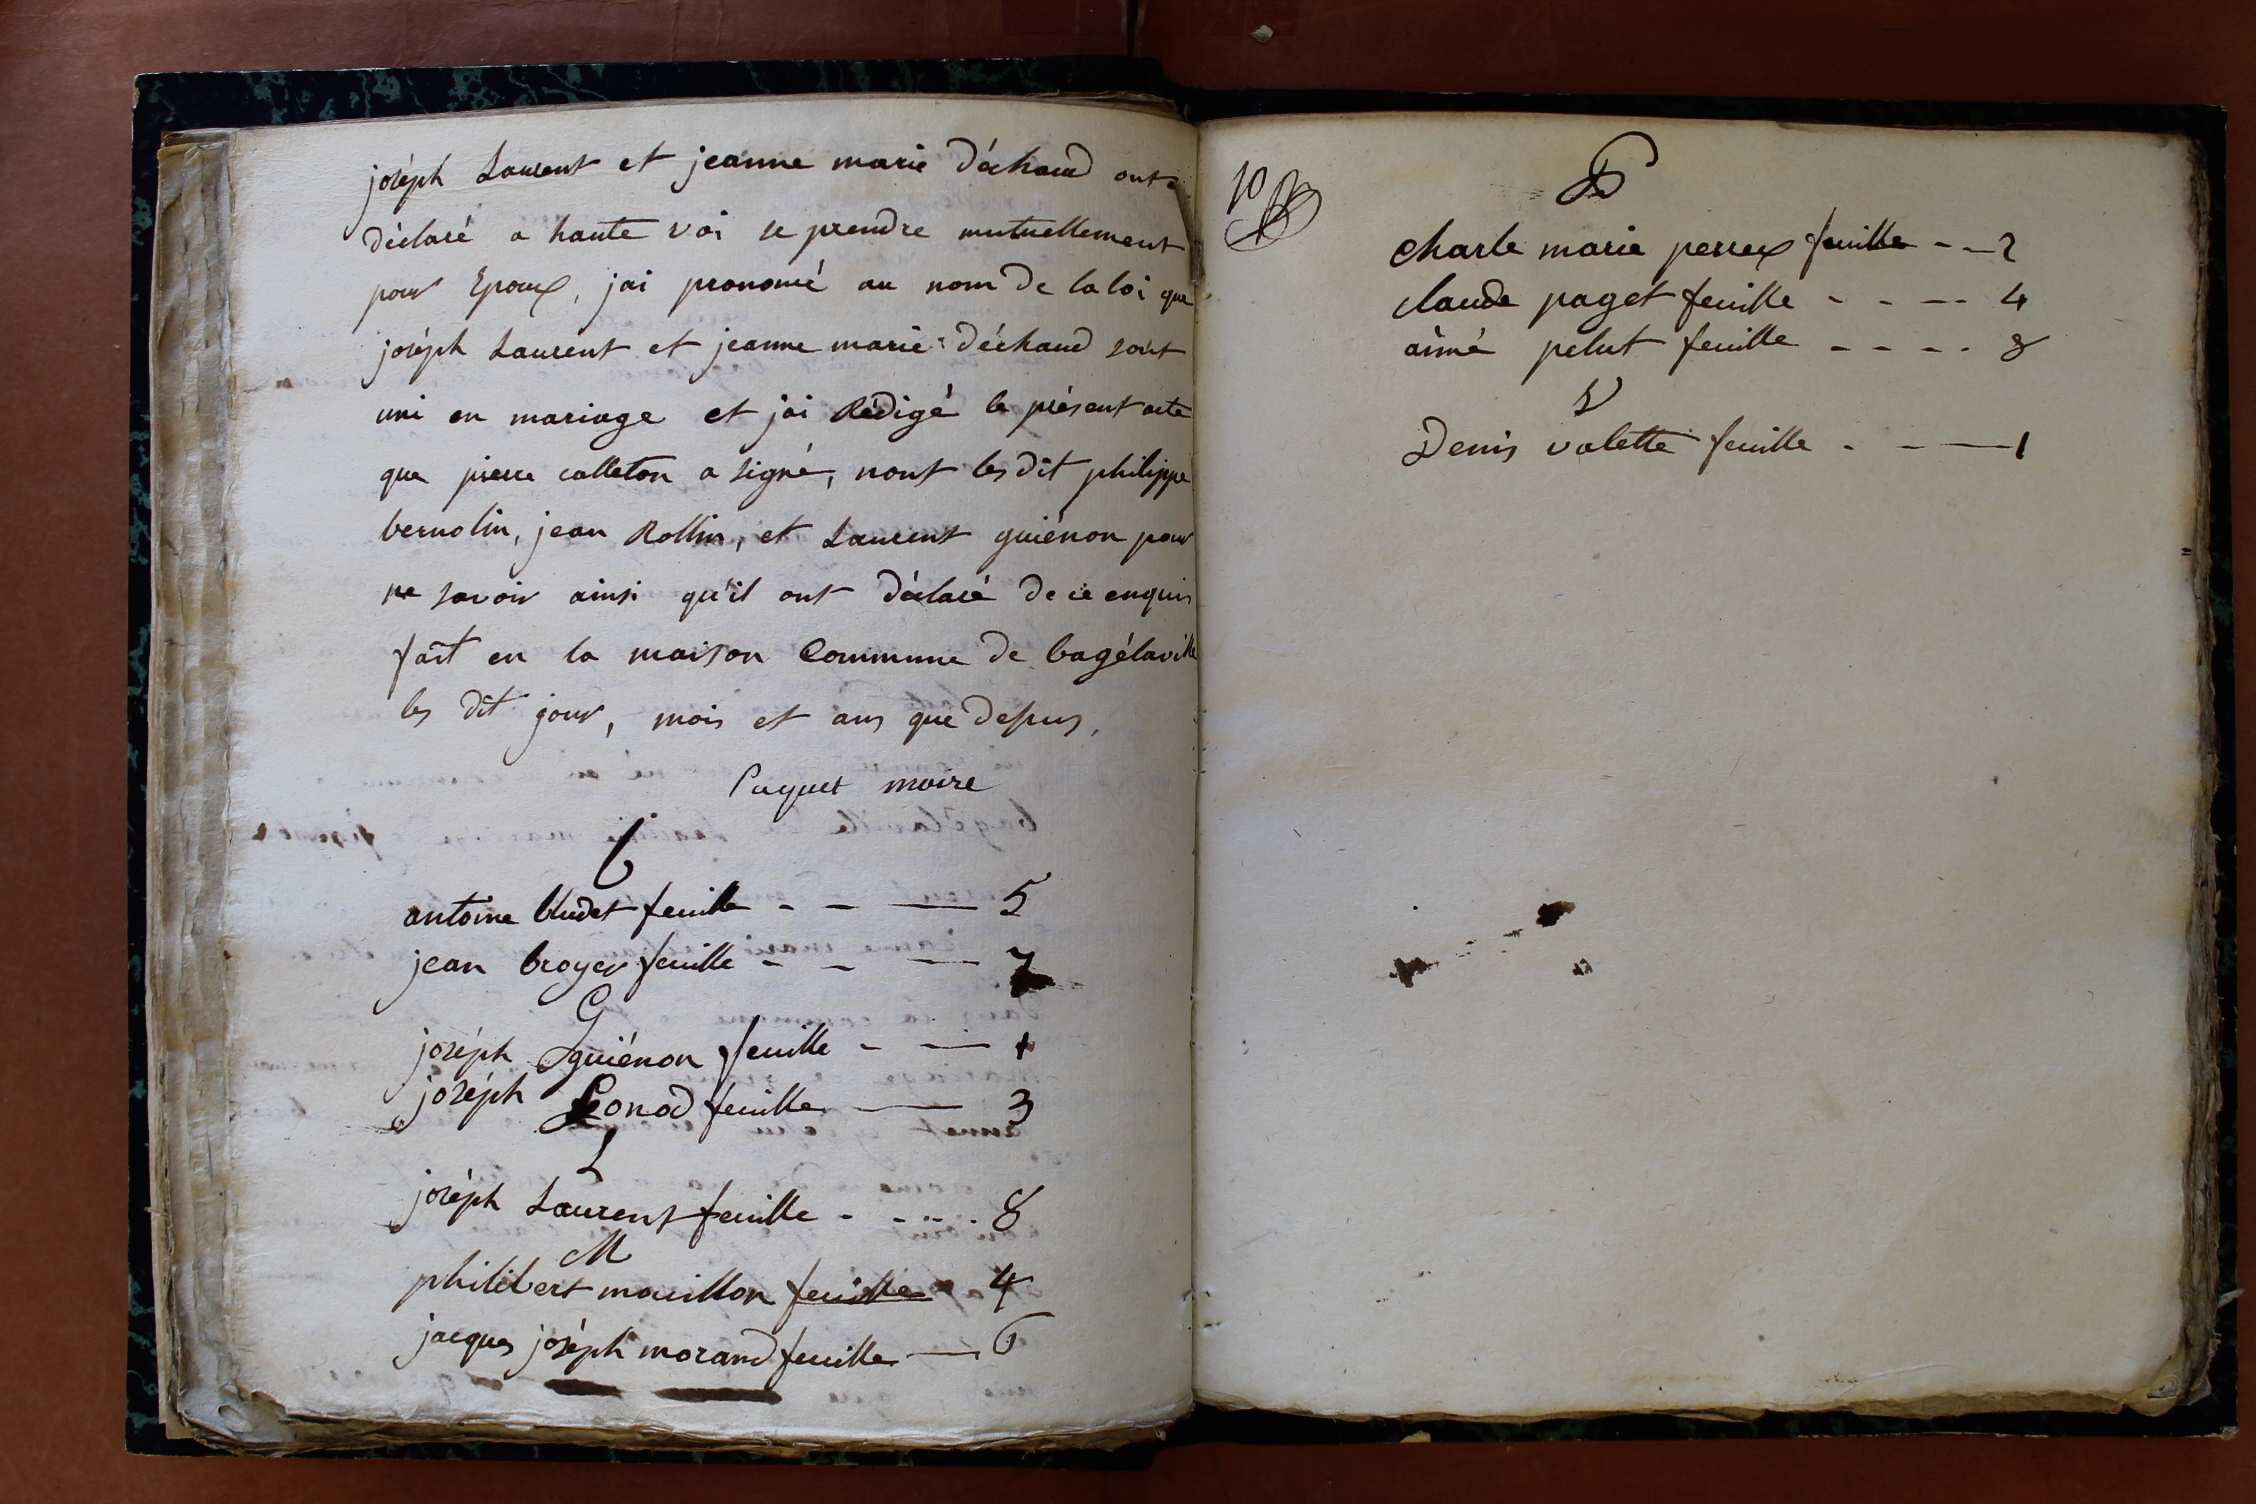 joséph Laurent et jeanne marie déchaud ont
déclaré a haute voi se prendre mutuellement
pour Epoux, jai prononcé au nom de la loi que
joséph Laurent et jeanne marie déchaud sont
uni en mariage et jai Rédigé le présent acte
que pierre calleton a signé, nont les dit philippe
bernolin, jean Rollin, et Laurent guiénon pour
ne savoir ainsi qu'il ont déclaré de ce enquis
fait en la maison Commune de bagélaville
les dit jour, mois et ans que desus,
Paquet maire
b
antoine bludet feuille - - — 5
jean broyer feuille - - — 7
G
joséph guiénon feuille - — 1
joséph Gonod feuille — 3
L
joséph Laurent feuille - - - - 8
M
philibert mouillon feuille 4
jacques joséph morand feuille — 6
10
P
Charle marie perreux feuille - — 2
claude paget feuille - - - - 4
aimé pelut feuille - - - - 8
V
Denis valette feuille - - — 1